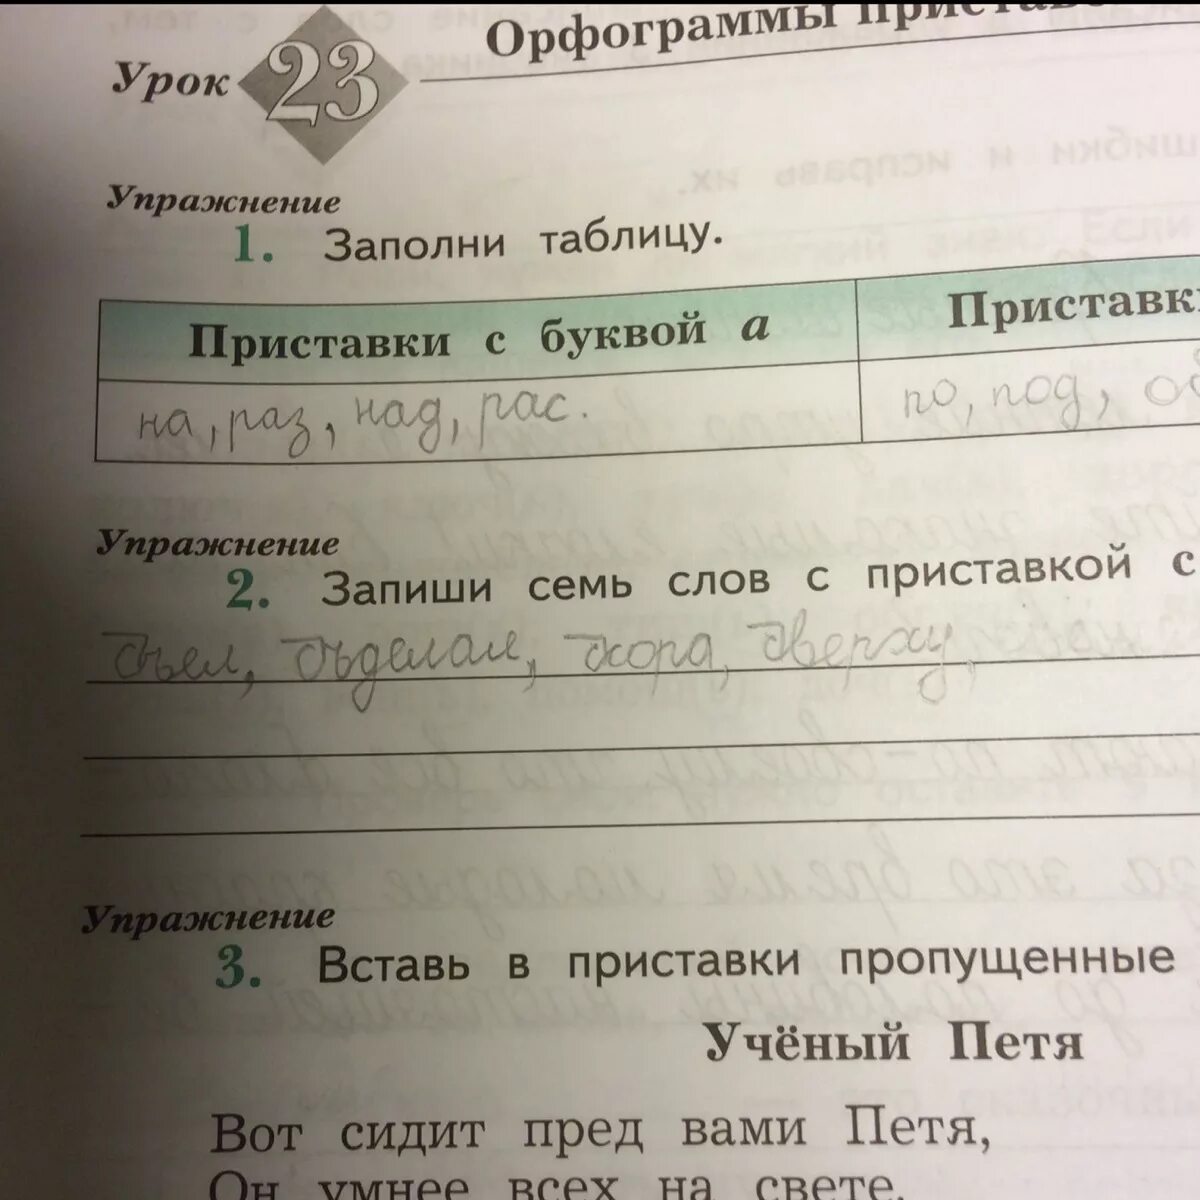 Орфограммы приставо
Урок 23
Упражнение
1. Заполни таблицу.
Приставки с буквой а Приставк
на, раз, над, рас. по, под, об
Упражнение
2. Запиши семь слов с приставкой с
съел, съделал, скора, сверху,
Упражнение
3. Вставь в приставки пропущенные
Учёный Петя
Вот сидит пред вами Петя,
Он умнее всех на свете.